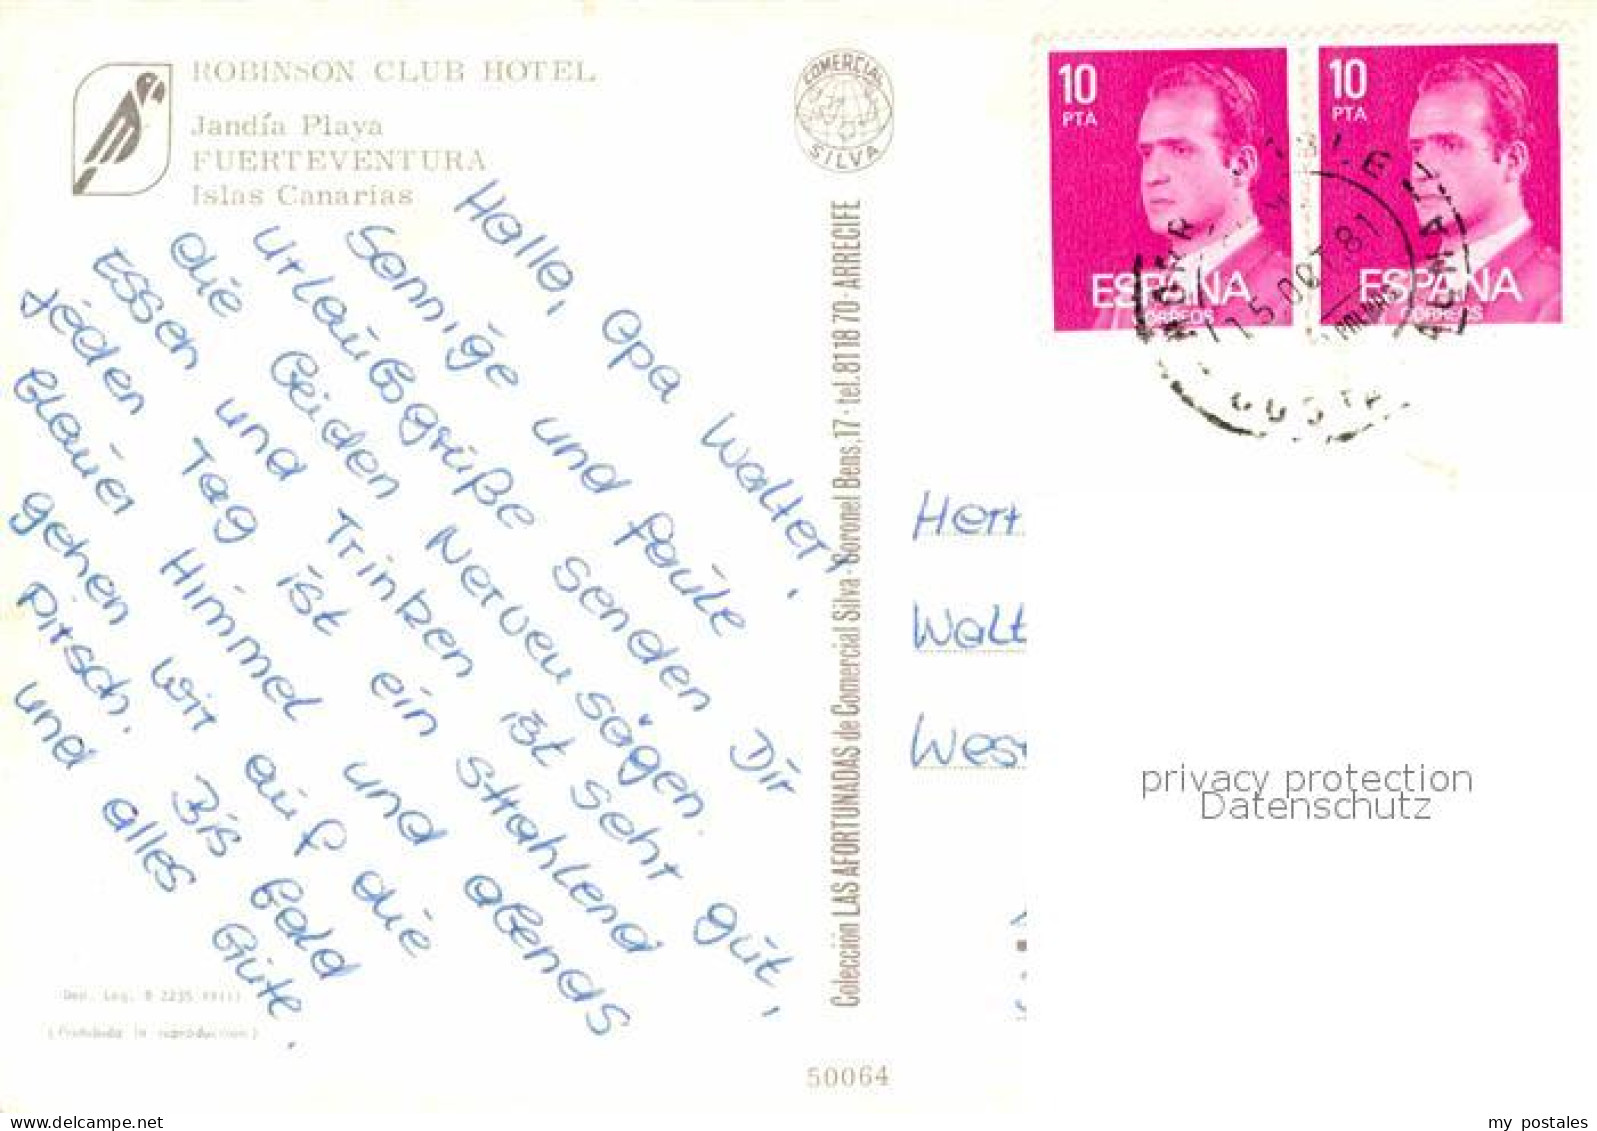 ROBINSON CLUB HOTEL
Jandía Playa
FUERTEVENTURA
Islas Canarias
COMERCIAL
SILVA
Hallo, Opa Walter,
Sonnige und faule
Urlaubsgrüße senden Dir
die beiden Nervensägen.
Essen und Trinken ist sehr gut,
jeden Tag ist ein strahlend
blauer Himmel und abends
gehen wir auf die
Pirsch. Bis bald
und alles Gute.
Dep. Leg. B 2235
Colección LAS AFORTUNADAS de Comercial Silva · Coronel Bens, 17 · tel. 81 18 70 · ARRECIFE
50064
10
PTA
ESPAÑA
CORREOS
10
PTA
ESPAÑA
CORREOS
15 OCT 81
Herr
Walt
Wes
privacy protection
Datenschutz
www.delcampe.net
my postales